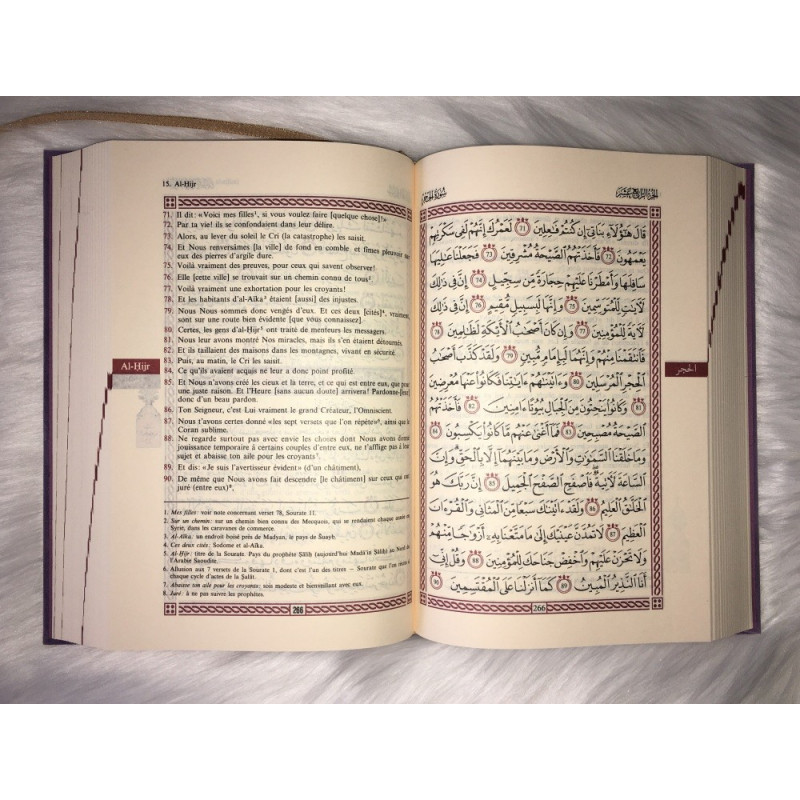 15. Al-Ḥijr
71. Il dit: «Voici mes filles¹, si vous voulez faire [quelque chose]!»
72. Par ta vie! ils se confondaient dans leur délire.
73. Alors, au lever du soleil le Cri (la catastrophe) les saisit.
74. Et Nous renversâmes [la ville] de fond en comble. et fîmes pleuvoir sur
eux des pierres d'argile dure.
75. Voilà vraiment des preuves, pour ceux qui savent observer!
76. Elle [cette ville] se trouvait sur un chemin connu de tous².
77. Voilà vraiment une exhortation pour les croyants!
78. Et les habitants d'al-Aïka³ étaient [aussi] des injustes.
79. Nous Nous sommes donc vengés d'eux. Et ces deux [cités]⁴, vraiment,
sont sur une route bien évidente [que vous connaissez].
80. Certes, les gens d'al-Ḥijr⁵ ont traité de menteurs les messagers.
81. Nous leur avons montré Nos miracles, mais ils s'en étaient détournés.
82. Et ils taillaient des maisons dans les montagnes, vivant en sécurité.
83. Puis, au matin, le Cri les saisit.
84. Ce qu'ils avaient acquis ne leur a donc point profité.
85. Et Nous n'avons créé les cieux et la terre, et ce qui est entre eux, que pour
une juste raison. Et l'Heure [sans aucun doute] arrivera! Pardonne-[leur]
donc d'un beau pardon.
86. Ton Seigneur, c'est Lui vraiment le grand Créateur, l'Omniscient.
87. Nous t'avons certes donné «les sept versets que l'on répète»⁶, ainsi que le
Coran sublime.
88. Ne regarde surtout pas avec envie les choses dont Nous avons donné
jouissance temporaire à certains couples d'entre eux, ne t'afflige pas à leur
sujet et abaisse ton aile pour les croyants⁷.
89. Et dis: «Je suis l'avertisseur évident» (d'un châtiment),
90. De même que Nous avons fait descendre [le châtiment] sur ceux qui ont
juré (entre eux)⁸,
1 Mes filles: voir note concernant verset 78, Sourate 11.
2 Sur un chemin: sur un chemin bien connu des Mecquois, qui se rendaient chaque année en
Syrie, dans les caravanes de commerce.
3 Al-Aïka: un endroit boisé près de Madyan, le pays de Šuayb.
4 Ces deux cités: Sodome et al-Aïka.
5 Al-Ḥijr: titre de la Sourate. Pays du prophète Ṣāliḥ (aujourd'hui Madā'in Ṣāliḥ) au Nord de
l'Arabie Saoudite.
6 Allusion aux 7 versets de la Sourate 1, dont c'est l'un des titres — Sourate que l'on récite à
chaque cycle d'actes de la Ṣalāt.
7 Abaisse ton aile pour les croyants: sois modeste et bienveillant avec eux.
8 Juré: à ne pas suivre les prophètes.
266
Al-Ḥijr
سُورَةُ الْحِجْرِ
الجُزْءُ الرَّابِعَ عَشَرَ
قَالَ هَٰؤُلَاءِ بَنَاتِي إِن كُنتُمْ فَاعِلِينَ ٧١ لَعَمْرُكَ إِنَّهُمْ لَفِي سَكْرَتِهِمْ
يَعْمَهُونَ ٧٢ فَأَخَذَتْهُمُ الصَّيْحَةُ مُشْرِقِينَ ٧٣ فَجَعَلْنَا عَالِيَهَا
سَافِلَهَا وَأَمْطَرْنَا عَلَيْهِمْ حِجَارَةً مِّن سِجِّيلٍ ٧٤ إِنَّ فِي ذَٰلِكَ
لَآيَاتٍ لِّلْمُتَوَسِّمِينَ ٧٥ وَإِنَّهَا لَبِسَبِيلٍ مُّقِيمٍ ٧٦ إِنَّ فِي ذَٰلِكَ
لَآيَةً لِّلْمُؤْمِنِينَ ٧٧ وَإِن كَانَ أَصْحَابُ الْأَيْكَةِ لَظَالِمِينَ ٧٨
فَانتَقَمْنَا مِنْهُمْ وَإِنَّهُمَا لَبِإِمَامٍ مُّبِينٍ ٧٩ وَلَقَدْ كَذَّبَ أَصْحَابُ
الْحِجْرِ الْمُرْسَلِينَ ٨٠ وَآتَيْنَاهُمْ آيَاتِنَا فَكَانُوا عَنْهَا مُعْرِضِينَ
٨١ وَكَانُوا يَنْحِتُونَ مِنَ الْجِبَالِ بُيُوتًا آمِنِينَ ٨٢ فَأَخَذَتْهُمُ
الصَّيْحَةُ مُصْبِحِينَ ٨٣ فَمَا أَغْنَىٰ عَنْهُم مَّا كَانُوا يَكْسِبُونَ ٨٤
وَمَا خَلَقْنَا السَّمَاوَاتِ وَالْأَرْضَ وَمَا بَيْنَهُمَا إِلَّا بِالْحَقِّ وَإِنَّ
السَّاعَةَ لَآتِيَةٌ فَاصْفَحِ الصَّفْحَ الْجَمِيلَ ٨٥ إِنَّ رَبَّكَ هُوَ
الْخَلَّاقُ الْعَلِيمُ ٨٦ وَلَقَدْ آتَيْنَاكَ سَبْعًا مِّنَ الْمَثَانِي وَالْقُرْآنَ
الْعَظِيمَ ٨٧ لَا تَمُدَّنَّ عَيْنَيْكَ إِلَىٰ مَا مَتَّعْنَا بِهِ أَزْوَاجًا مِّنْهُمْ
وَلَا تَحْزَنْ عَلَيْهِمْ وَاخْفِضْ جَنَاحَكَ لِلْمُؤْمِنِينَ ٨٨ وَقُلْ إِنِّي
أَنَا النَّذِيرُ الْمُبِينُ ٨٩ كَمَا أَنزَلْنَا عَلَى الْمُقْتَسِمِينَ ٩٠
266
الحجر